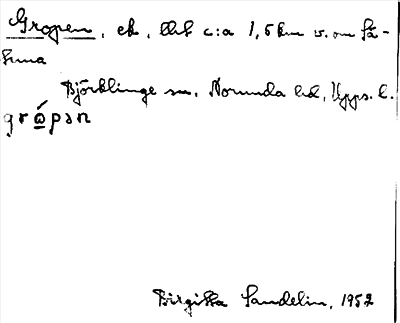 Gropen, ek, c:a 1,5 km v. om Få-
Björklinge sn, Norunda hd, Upps. l.
Birgitta Sandelin, 1952